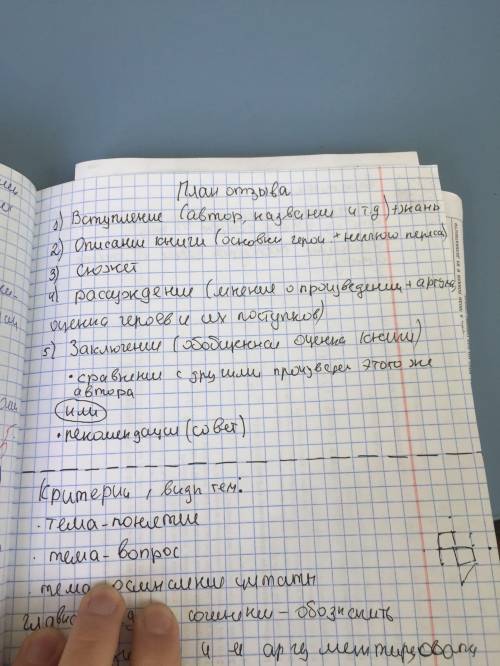 План отзыва
1) Вступление (автор, название и т.д) + жанр
2) Описание книги (основн герои +
3) Сюжет
4) рассуждение (мнение о произведении + аргум,
оценка героев и их поступков)
5) Заключение (обобщенная оценка книги)
• сравнение с другими произвед этого же
автора
или
• рекомендации (совет)
Критерии, виды тем:
• тема-понятие
• тема-вопрос
• тема осмысление цитаты
сочинени - обозначить
и